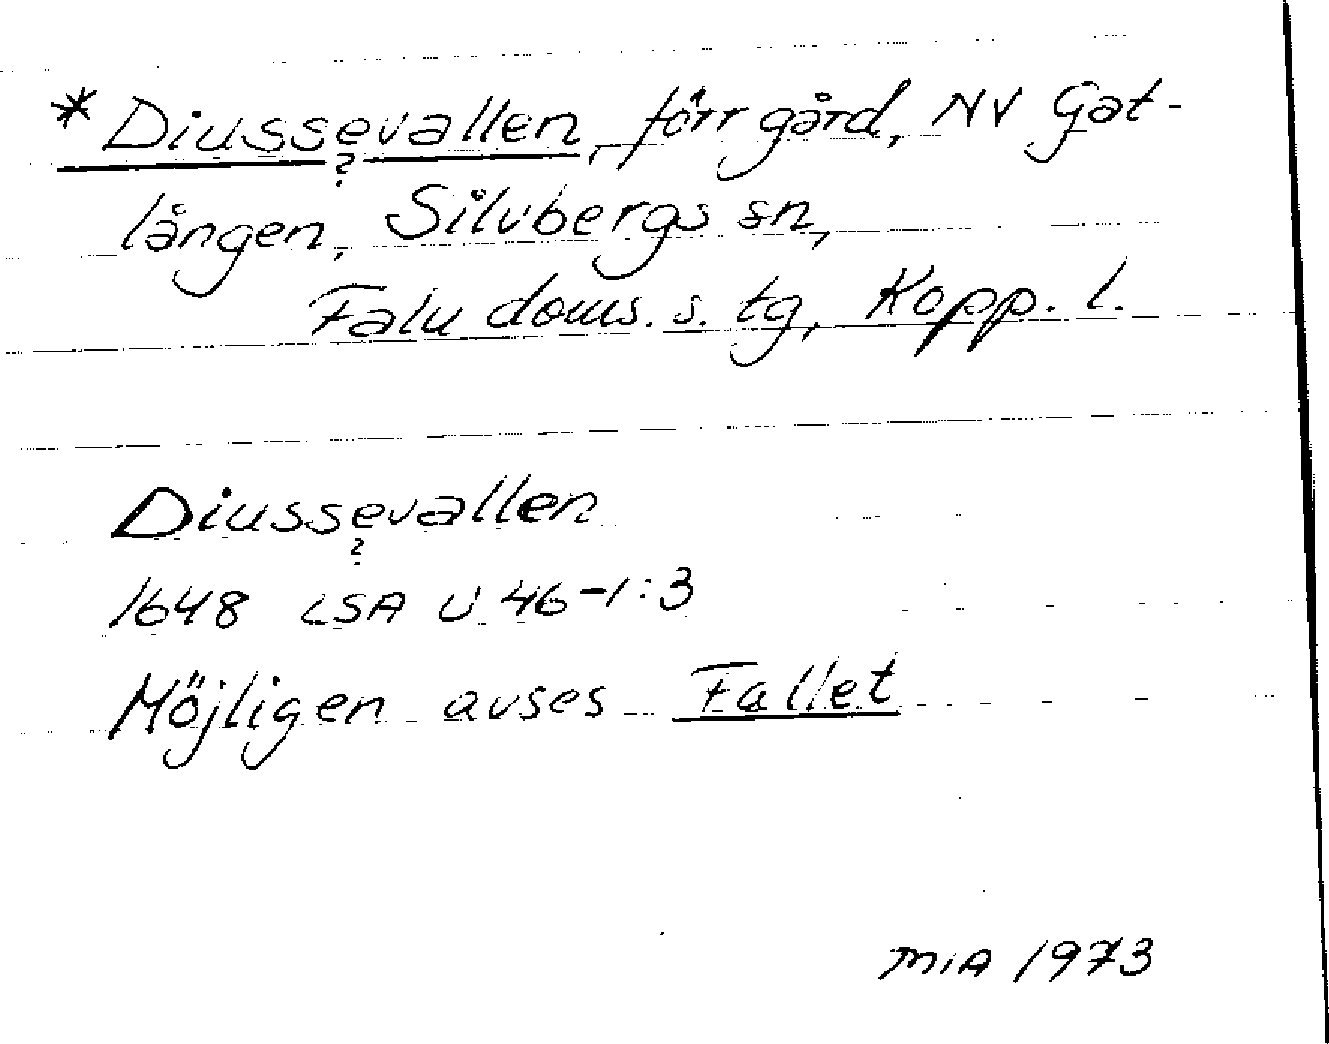 *Diussevallen, förr gård, NV Gat-
?
lången, Silvbergs sn,
Falu doms. s. tg, Kopp. l.
Diussevallen
?
1648 LSA U 46-1:3
Möjligen avses Fallet
MIA 1973